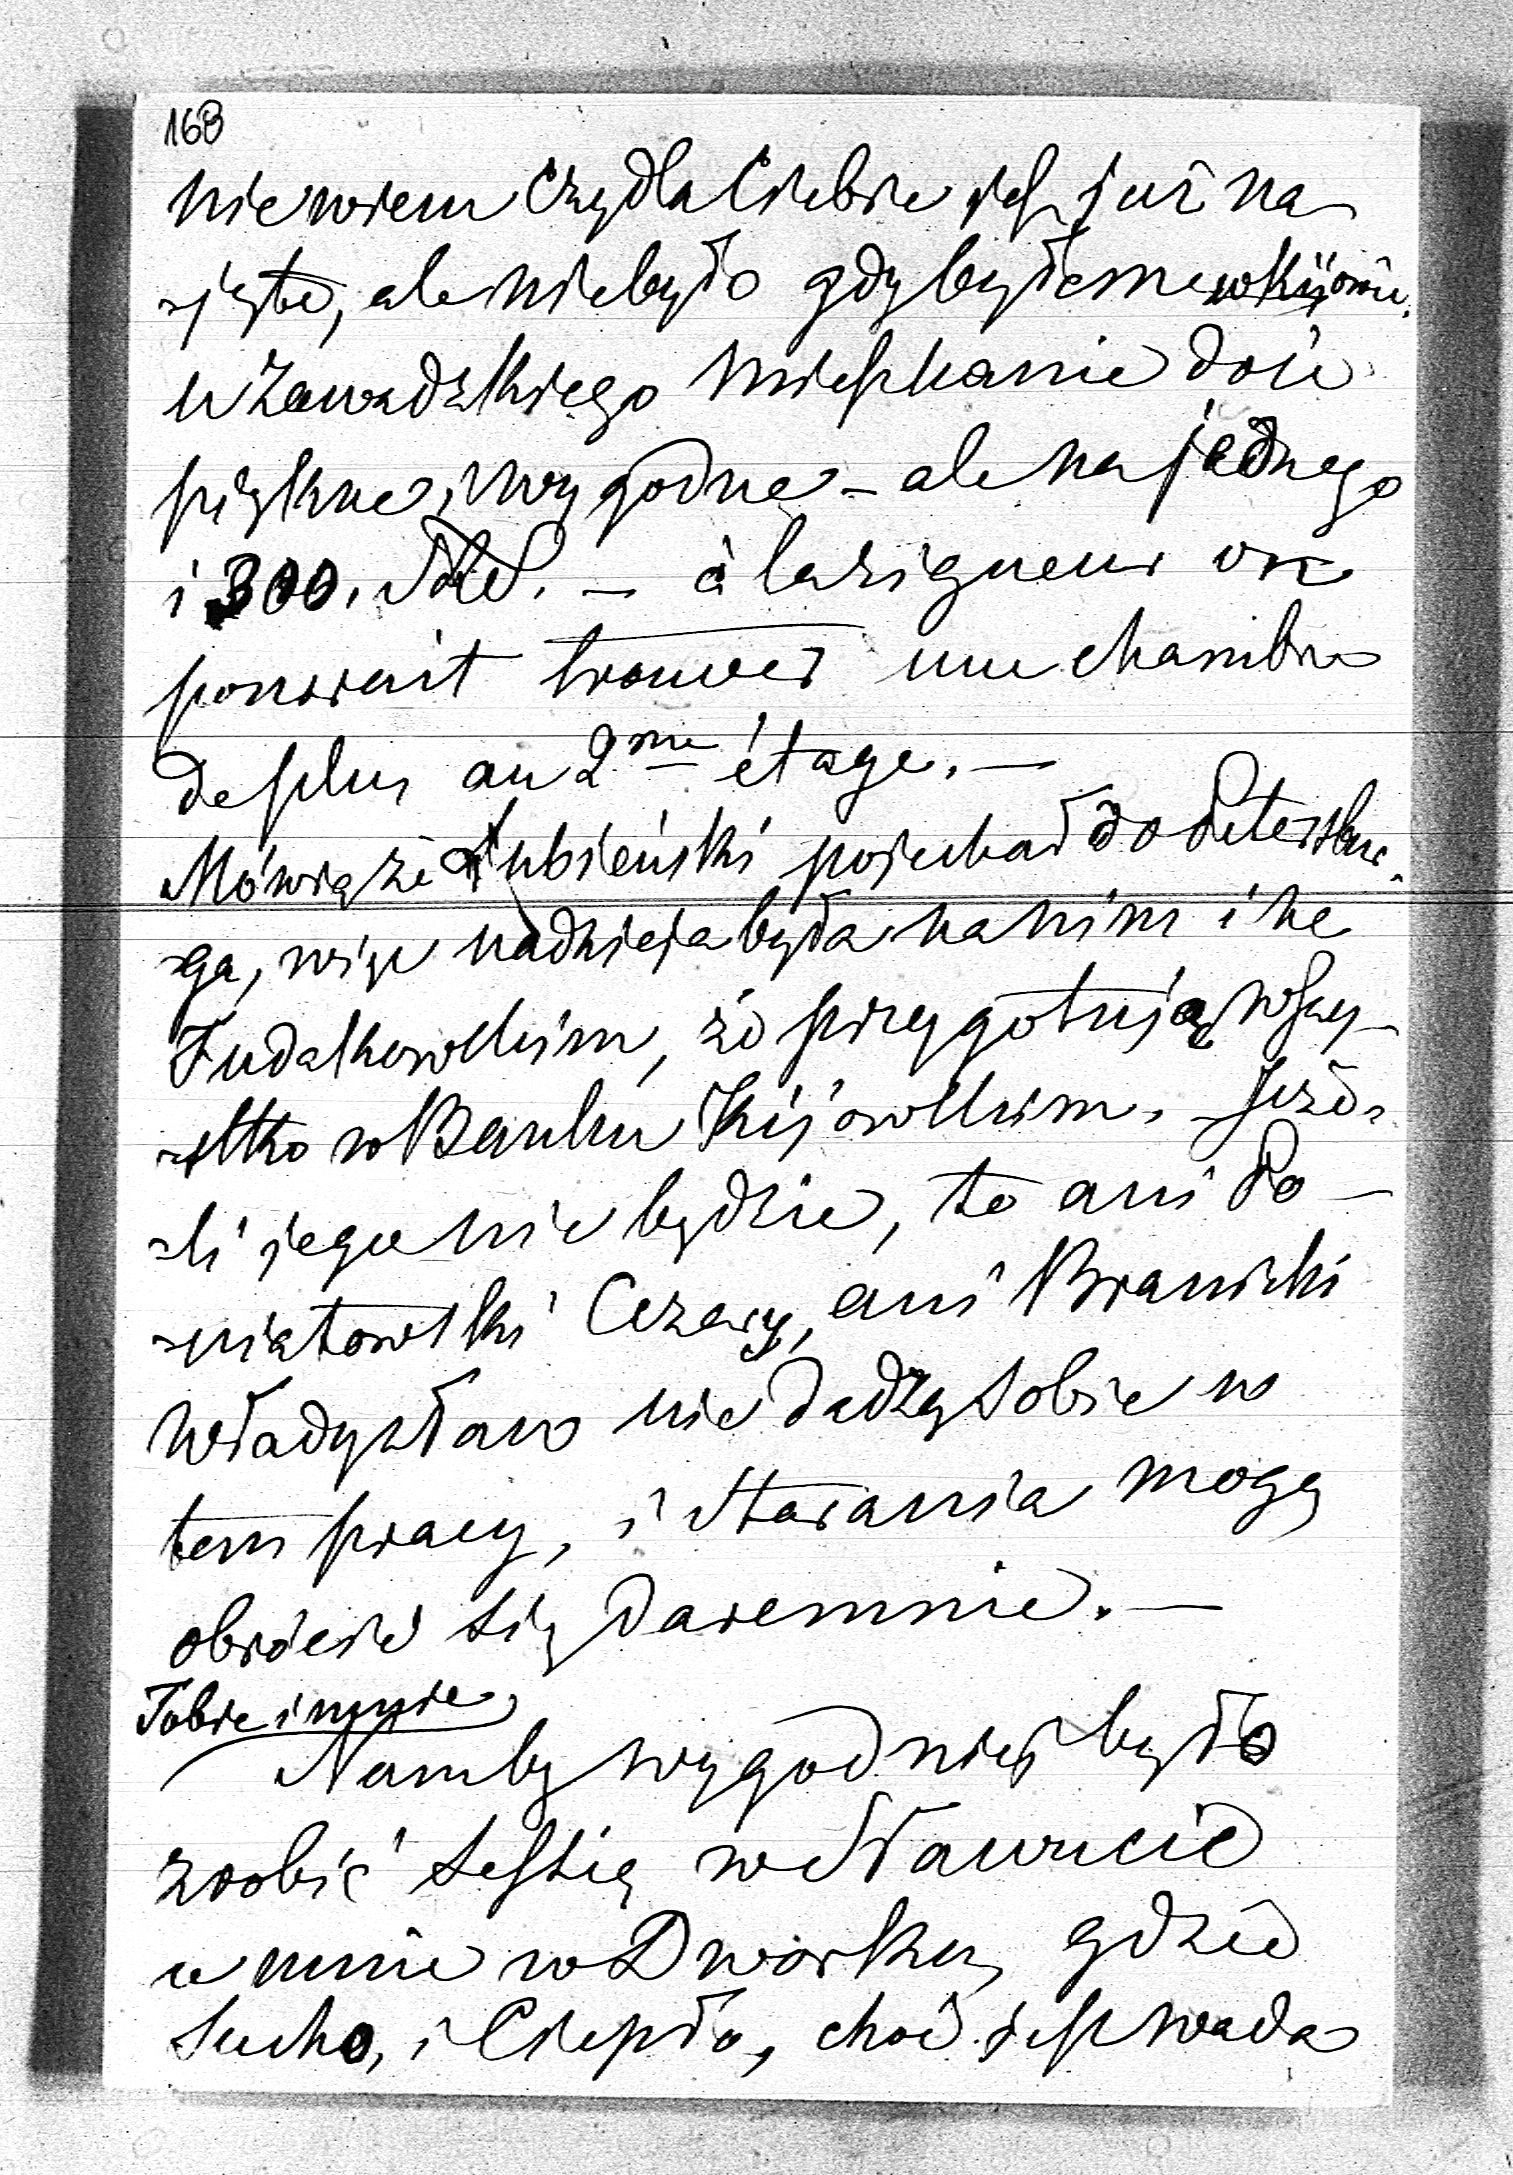 168
nie wiem czy dla Ciebie jest już na
jęte, ale niebyło gdy byłem w Kijowie.
u Zawadzkiego mieszkanie dość
piękne, i wygodne – ale na jednego
i 300. – à la rigueur on
pourait trouver une chambre
de plus au 2me étage. –
Mówią że Łubieński pojechał do Petersbur-
ga, więc nadzieja była na nim i na
Fudakowskim, że przygotują wszy-
stko w Banku Kijowskim. Jeże-
li jego nie będzie, to ani Po-
niatowski Cezary, ani Branicki
Władysław nie dadzą sobie w
tem pracy, i starania mogą
obrócić się daremnie. –
Tobie i mnie
Namby wygodniej było
zrobić sessię w Sławucie
u mnie w Dworku, gdzie
sucho, i Ciepło, choć jest wada